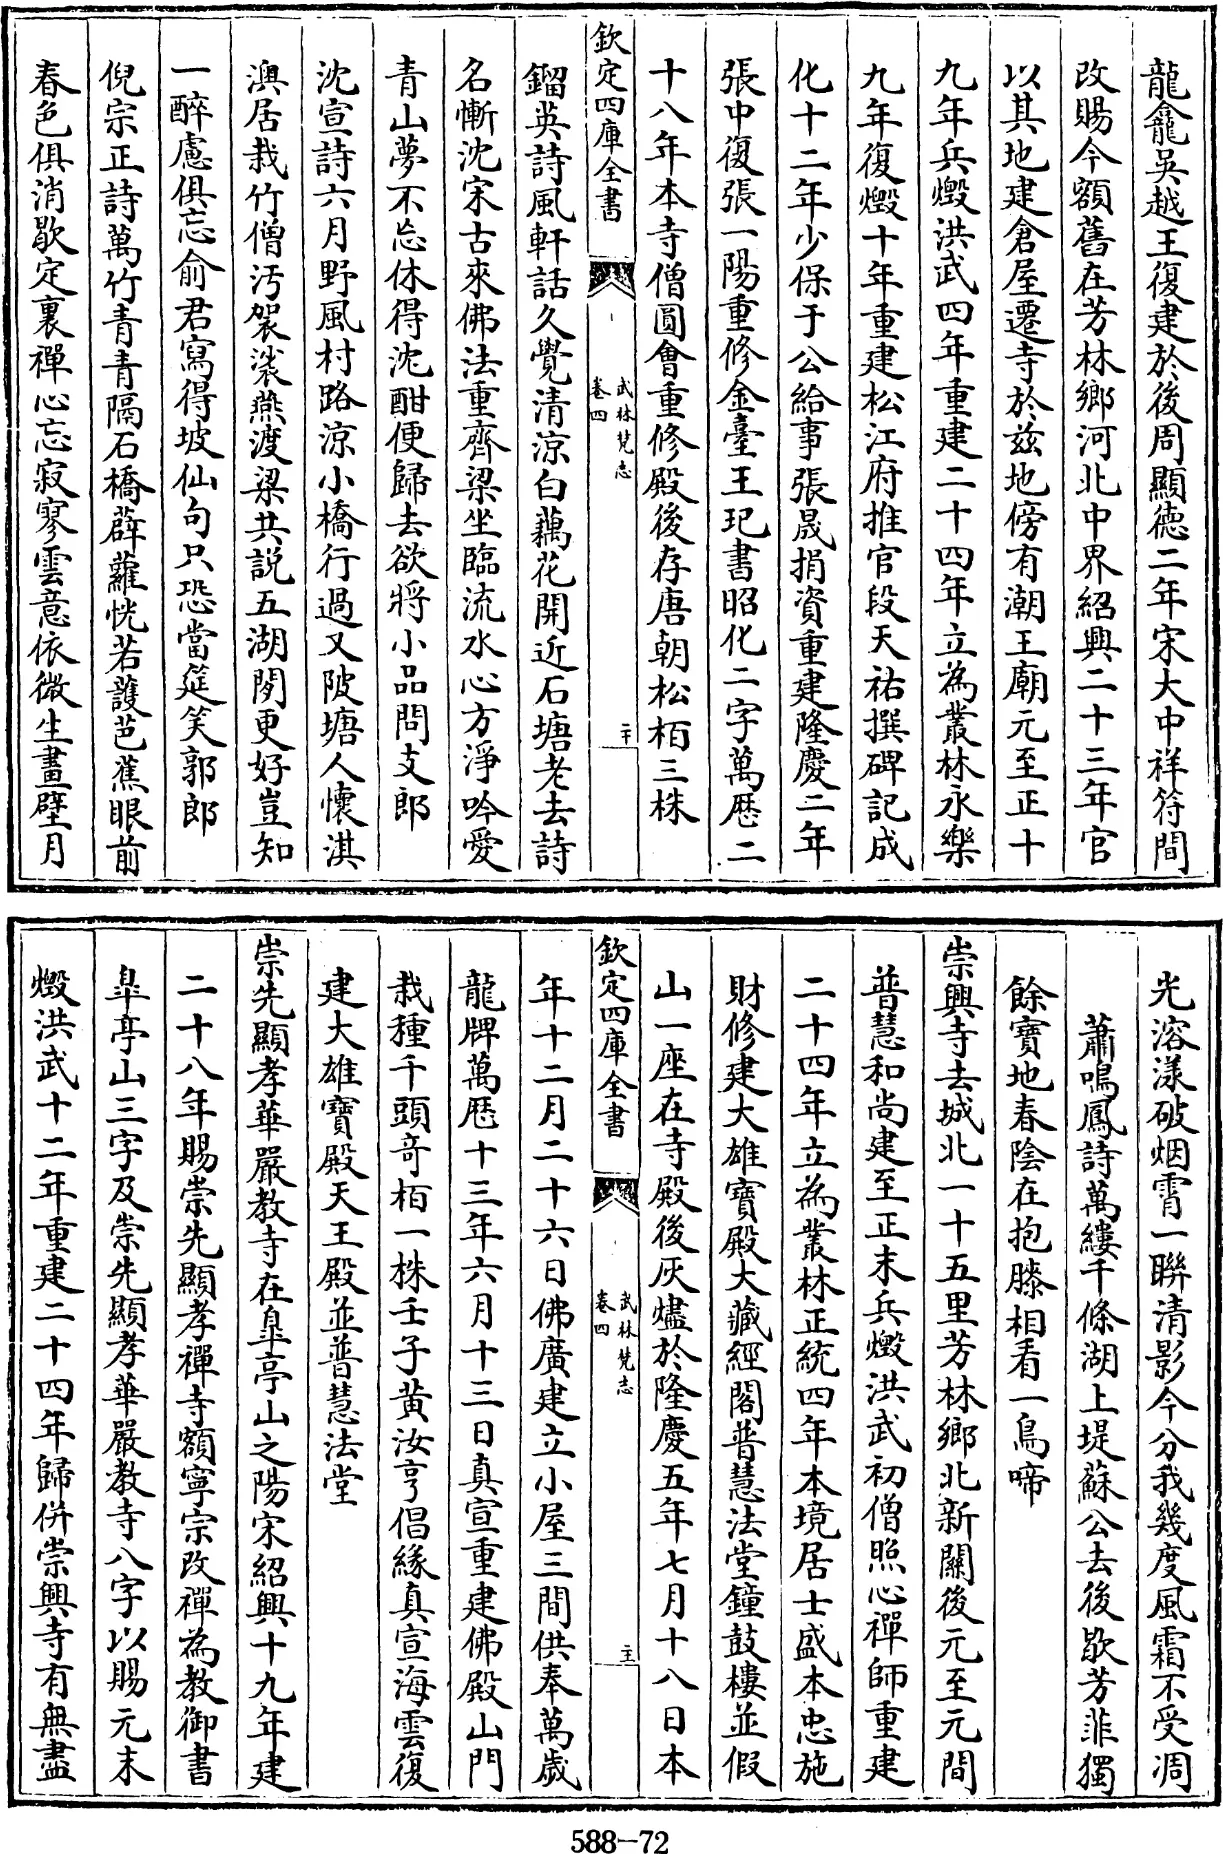 龍龕吳越王復建於後周顯德二年宋大中祥符間
改賜今額舊在芳林鄉河北中界紹興二十三年官
以其地建倉屋遷寺於兹地傍有潮王廟元至正十
九年兵燬洪武四年重建二十四年立為叢林永樂
九年復燬十年重建松江府推官段天祐撰碑記成
化十二年少保于公給事張晟捐資重建隆慶二年
張中復張一陽重修金臺王玘書昭化二字萬厯二
十八年本寺僧圓會重修殿後存唐朝松栢三株
欽定四庫全書
武林梵志
卷四
二十
鎦英詩風軒話久覺清凉白藕花開近石塘老去詩
名慚沈宋古來佛法重齊梁坐臨流水心方淨吟愛
青山夢不忘休得沈酣便歸去欲將小品問支郎
沈宣詩六月野風村路凉小橋行過又陂塘人懷淇
澳居栽竹僧汚袈裟燕渡梁共説五湖閒更好豈知
一醉慮俱忘俞君寫得坡仙句只恐當筵笑郭郎
倪宗正詩萬竹青青隔石橋薜蘿恍若護芭蕉眼前
春色俱消歇定裏禪心忘寂寥雲意依微生畫壁月
光溶漾破烟霄一聯清影今分我幾度風霜不受凋
蕭鳴鳳詩萬縷千條湖上堤蘇公去後歇芳菲獨
餘寶地春陰在抱膝相看一鳥啼
崇興寺去城北一十五里芳林鄉北新關後元至元間
普慧和尚建至正末兵燬洪武初僧照心禪師重建
二十四年立為叢林正統四年本境居士盛本忠施
財修建大雄寶殿大藏經閣普慧法堂鐘鼓樓並假
山一座在寺殿後灰燼於隆慶五年七月十八日本
欽定四庫全書
武林梵志
卷四
主
年十二月二十六日佛廣建立小屋三間供奉萬歲
龍牌萬厯十三年六月十三日真宣重建佛殿山門
栽種千頭奇栢一株壬子黃汝亨倡緣真宣海雲復
建大雄寶殿天王殿並普慧法堂
崇先顯孝華嚴教寺在臯亭山之陽宋紹興十九年建
二十八年賜崇先顯孝禪寺額寧宗改禪為教御書
臯亭山三字及崇先顯孝華嚴教寺八字以賜元末
燬洪武十二年重建二十四年歸併崇興寺有無盡
588-72